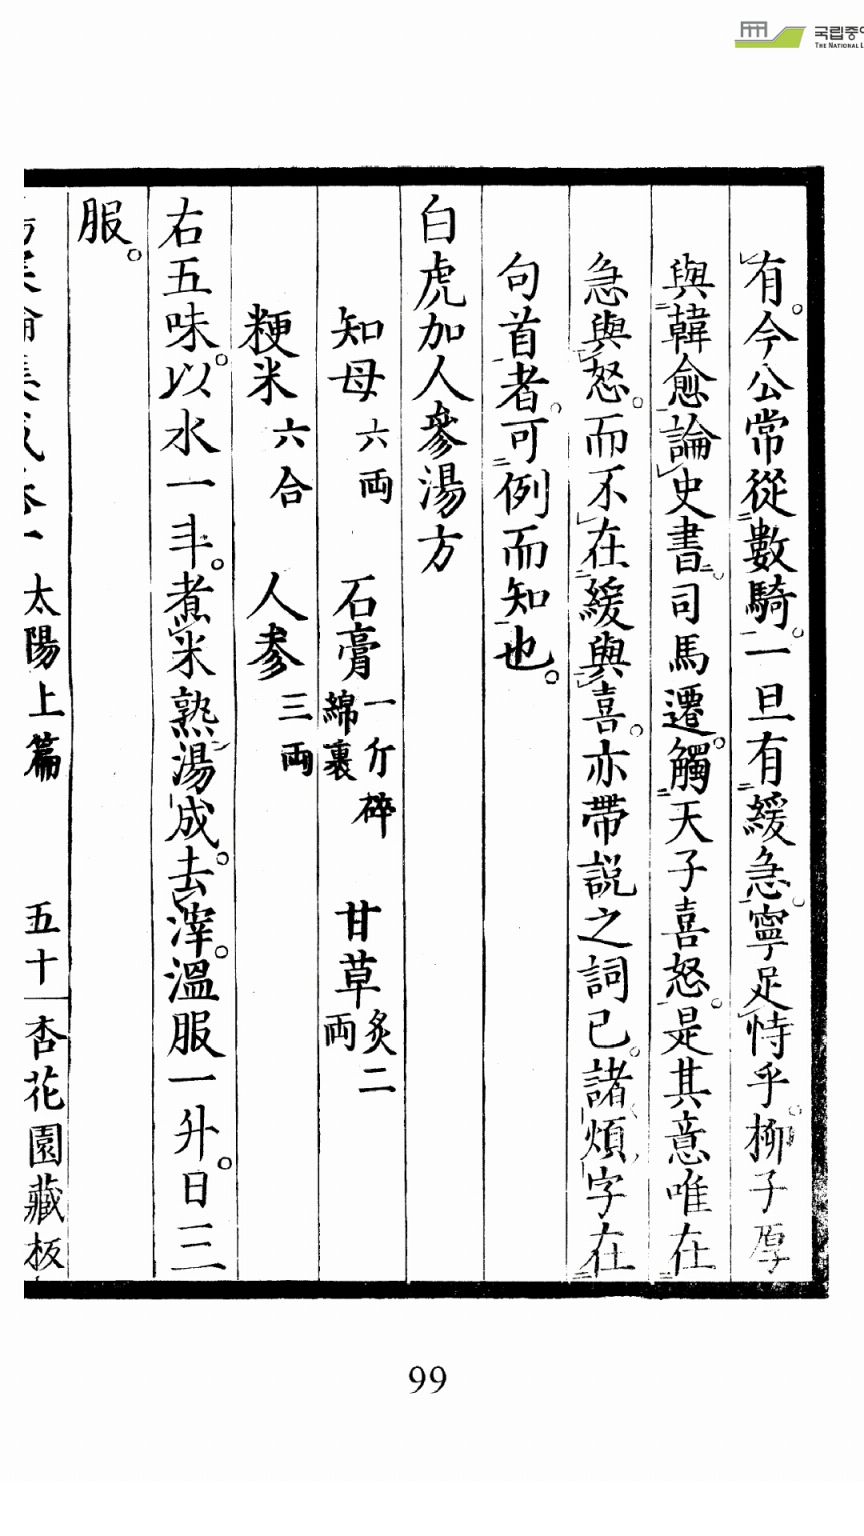 국립중
THE NATIONAL L
有。今公常從數騎。一旦有緩急。寧足恃乎。柳子厚
與韓愈論史書。司馬遷。觸天子喜怒。是其意唯在
急與怒。而不在緩與喜。亦帶説之詞已。諸煩字在
句首者。可例而知也。
白虎加人參湯方
知母六兩 石膏一斤碎綿裹 甘草炙二兩
粳米六合 人參三兩
右五味。以水一斗。煮米熟湯成。去滓。溫服一升。日三
服。
太陽上篇 五十一 杏花園藏板
99